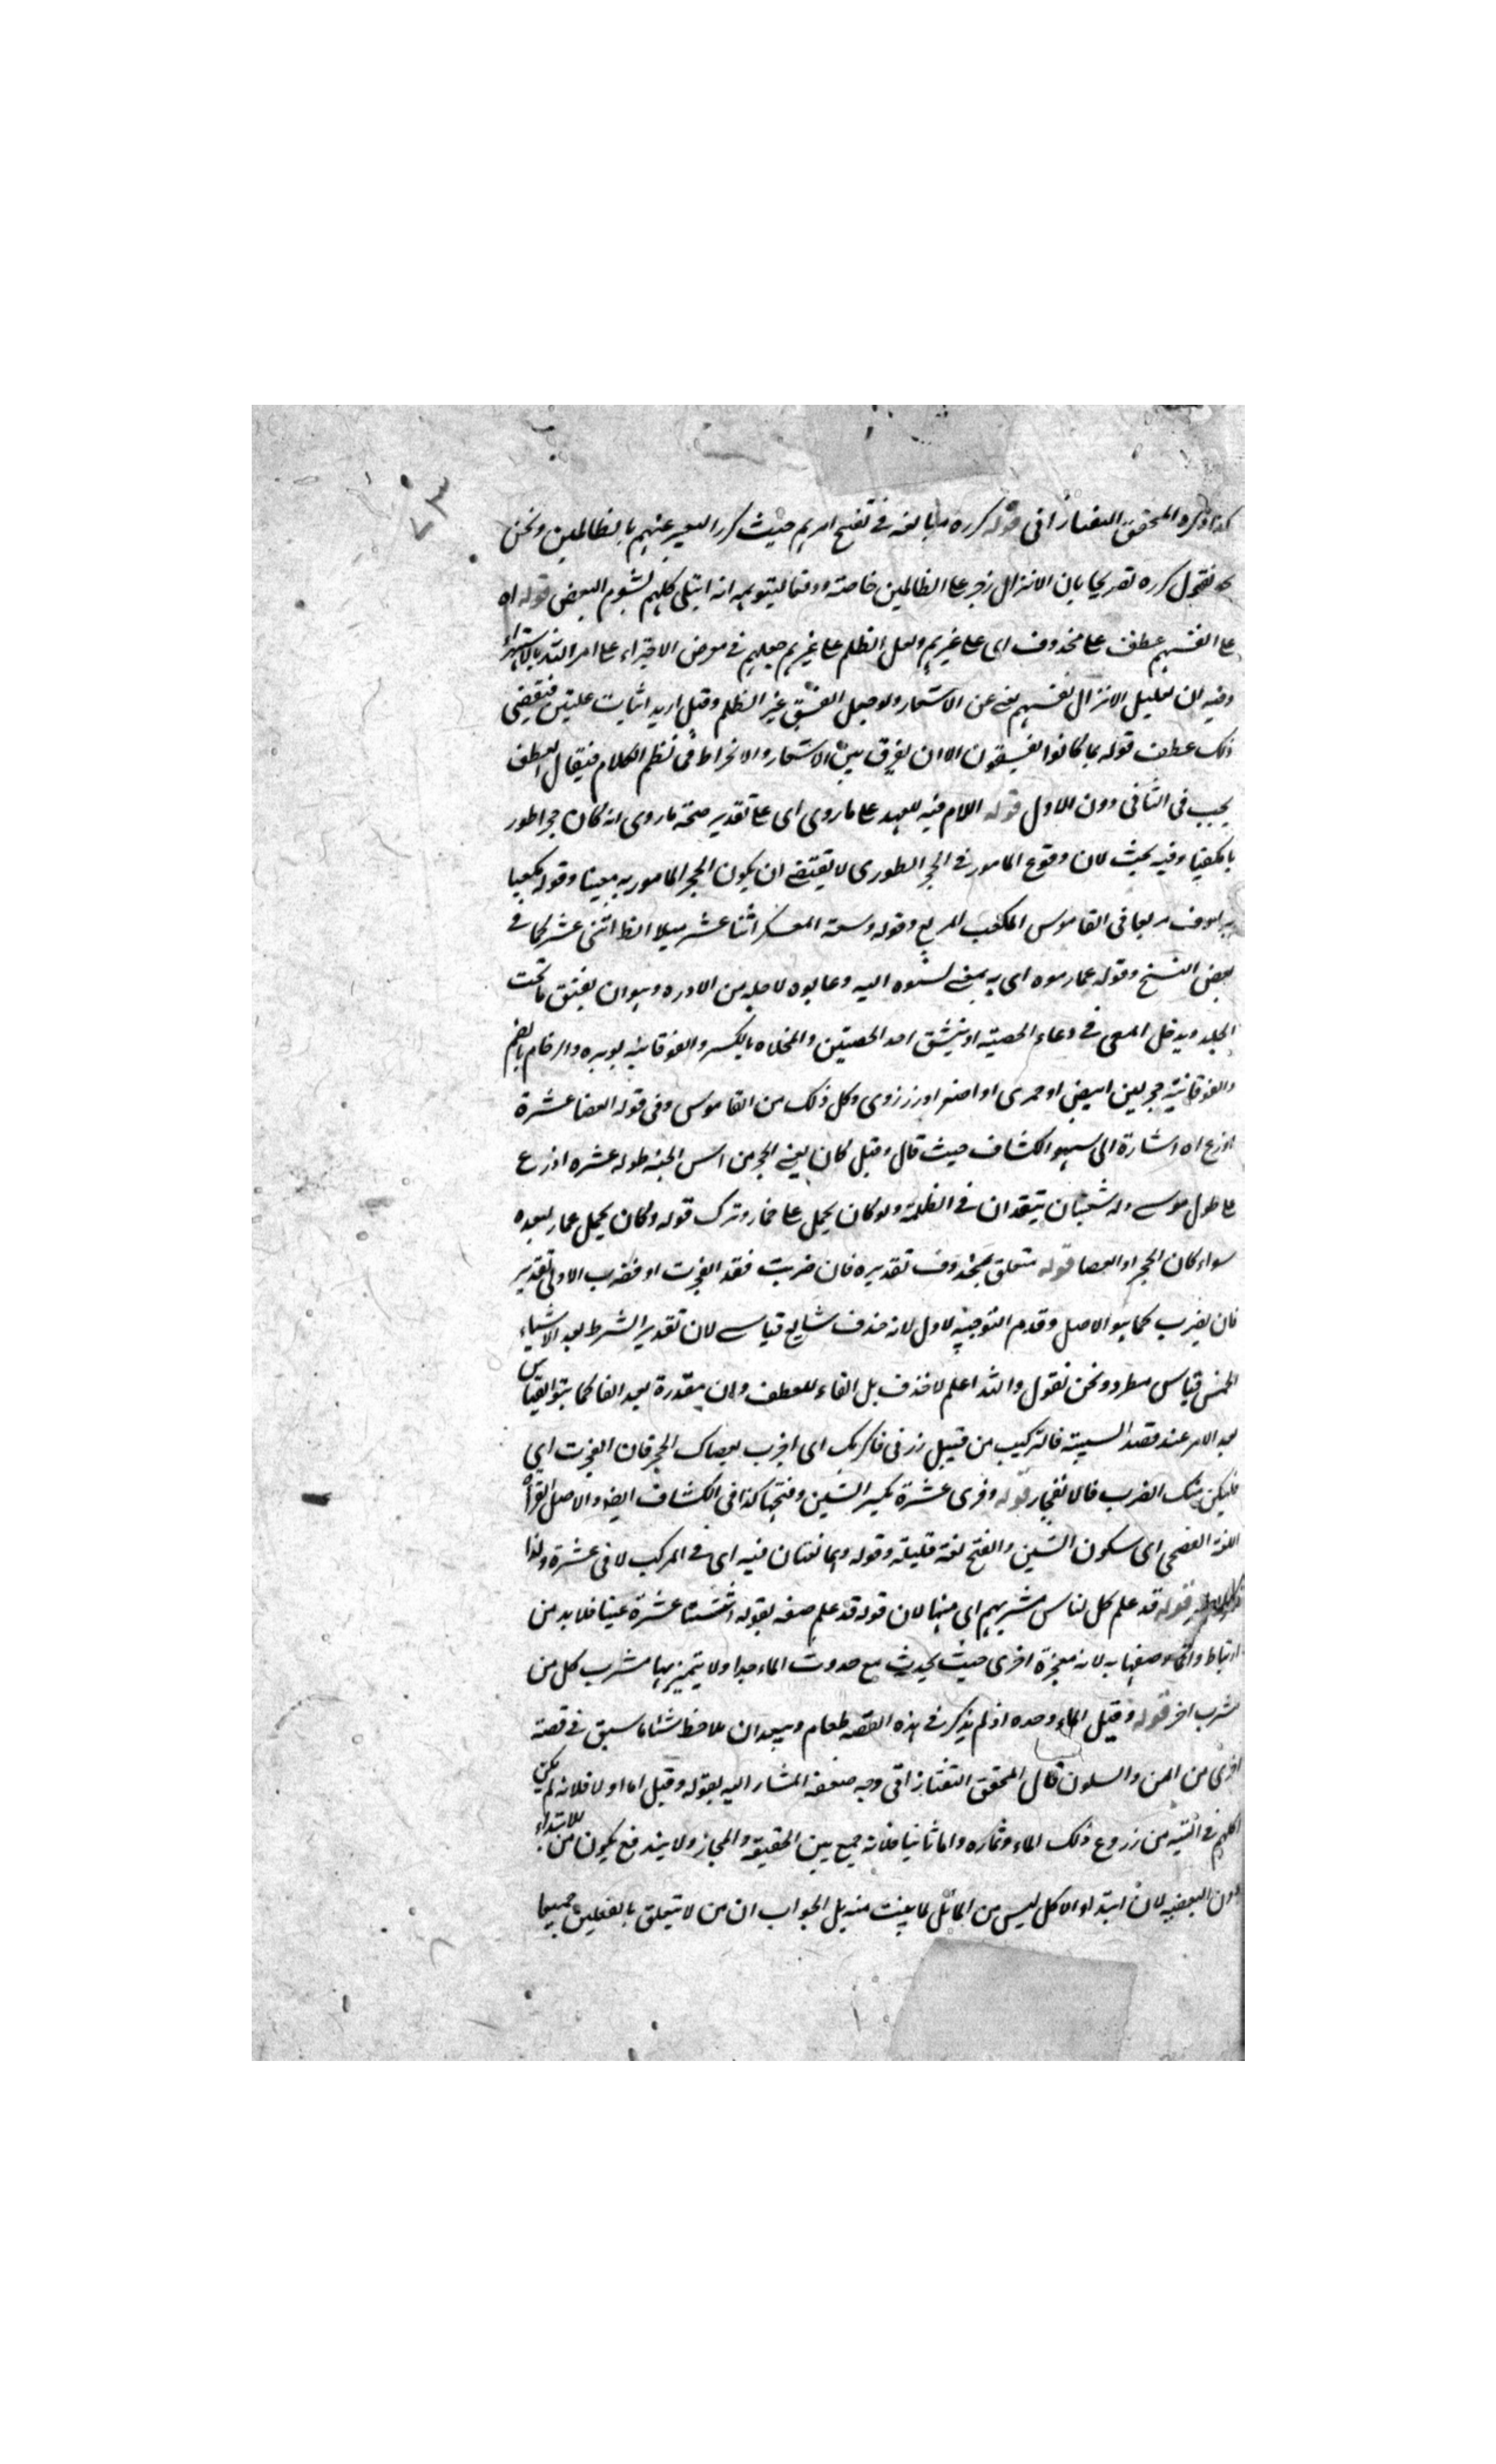 ٧٣
كذا ذكره المحقق التفتازاني قوله كرره مبالغة في تقبيح امرهم حيث كرر التعبير عنهم بالظالمين ونحن
نقول كرره تصريحا بان الانزال زجر على الظالمين خاصة ودفعا ليتوهم انه ابتلى كلهم لشوم البعض قوله او
على انفسهم عطف على محذوف اى على غيرهم ولعل الظلم على غيرهم جعلهم في معرض الاجتراء على امر الله بالاستهزاء
وفيه ان تعليل الانزال بفسقهم يغني عن الاشعار ولو جعل الفسق غير الظلم وقيل اريد اثبات علتين فيقتضي
ذلك عطف قوله بما كانوا يفسقون الا ان يفرق بين الاشعار والانخراط في نظم الكلام فيقال العطف
يجب في الثاني دون الاول قوله اللام فيه للعهد على ما روى اى على تقدير صحة ما روى انه كان حجرا طور
يا مكعبا وفيه بحث لان وقوع المامور في الحجر الطورى لا يقتضي ان يكون الحجر المامور به معينا وقوله مكعبا
مربعا في القاموس المكعب المربع وقوله وسعة المعسكر اثنا عشر ميلا الظ اثنى عشر كما في
بعض النسخ وقوله عما رموه اى به يعني نسبوه اليه وعابوه لاجله من الادره وهو ان يفتق ما تحت
الجلد ويدخل المعى في وعاء الخصية او ينشق احد الخصيتين والمخلاة بالكسر والفوقانية توبره والرخام بالضم
والفوقانية حجر لين ابيض او خمرى او اصفر او زرزورى وكل ذلك من القاموس وفي قوله العصا عشرة
اذرع اه اشارة الى سهو الكشاف حيث قال وقيل كان يعني الحجر من اس الجنة طوله عشرة اذرع
على طول موسى وله شعبتان يتقدان في الظلمة وكان يحمل على حمار وترك قوله وكان يحمل على حمار لبعده
سواء كان الحجر او العصا قوله متعلق بمحذوف تقديره فان ضربت فقد انفجرت او فضرب الاولى تقدير
فان يضرب كما هو الاصل وقدم التوجيه الاول لانه حذف شايع قياسي لان تقدير الشرط بعد الاشياء
الخمس قياس مطرد ونحن نقول والله اعلم لا حذف بل الفاء للعطف وان مقدرة بعد الفا كما هو القياس
بعد الامر عند قصد السببية فالتركيب من قبيل زرني فاكرمك اى اضرب بعصاك الحجر فان انفجرت اى
فليكن منك الضرب فالانفجار قوله وقرى عشرة بكسر الشين وفتحها كذا في الكشاف ايضا والاصل القراة
اللغة الفصحى اى سكون الشين والفتح لغة قليلة وقوله وهما لغتان فيه اى في المركب لا في عشرة ولذا
قوله قد علم كل اناس مشربهم اى منها لان قوله قد علم صفة لقوله اثنتا عشرة عينا فلا بد من
ارتباط وانما وصفها به لانه معجزة اخرى حيث يحدث مع حدوث الماء جدا ولا يتميز بها مشرب كل من
مشرب اخر قوله وقيل الماء وحده اذ لم يذكر في هذه القصة طعام ويبعد ان يلاحظ شئ ما سبق في قصة
اخرى من المن والسلوى قال المحقق التفتازاني وجه ضعفه المشار اليه بقوله وقيل اما اولا فلانه لم يكن
اكلهم في التيه من زروع ذلك الماء وثماره واما ثانيا فلانه جمع بين الحقيقة والمجاز ولا يندفع بكون من للابتداء
دون البعضية لان ابتداء الاكل ليس من الماء بل مما ينبت منه بل الجواب ان من لا يتعلق بالفعلين جميعا